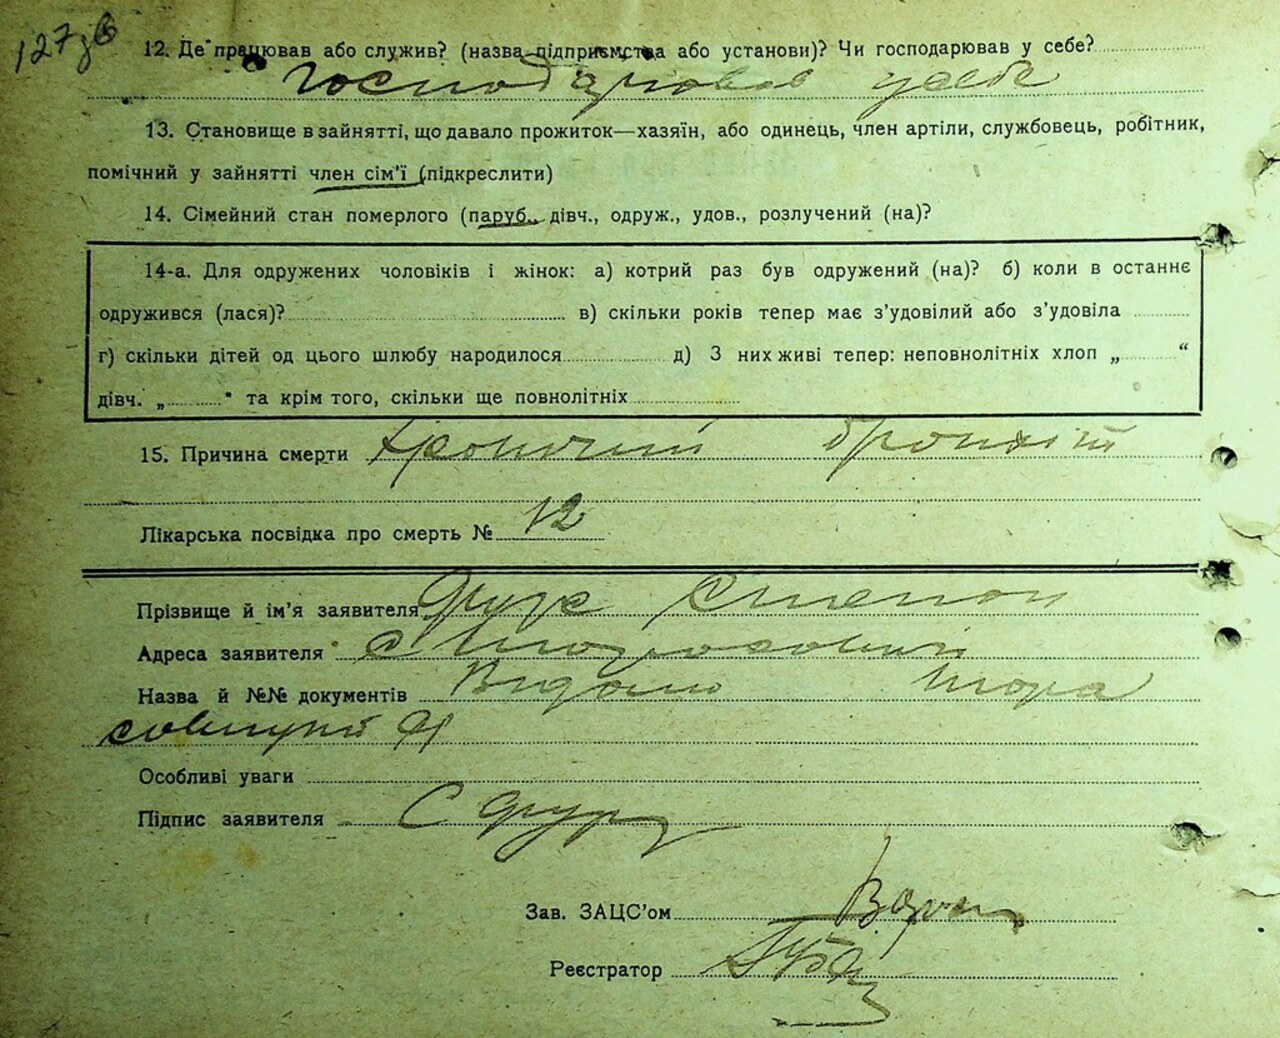 127 зв
12. Де працював або служив? (назва підприємства або установи)? Чи господарював у себе?
Господарював у себе
13. Становище в зайнятті, що давало прожиток—хазяїн, або одинець, член артіли, службовець, робітник,
помічний у зайнятті член сім'ї (підкреслити)
14. Сімейний стан померлого (паруб., дівч., одруж., удов., розлучений (на)?
14-а. Для одружених чоловіків і жінок: а) котрий раз був одружений (на)? б) коли в останнє
одружився (лася)? в) скільки років тепер має з'удовілий або з'удовіла
г) скільки дітей од цього шлюбу народилося д) З них живі тепер: неповнолітніх хлоп „ “
дівч. „ “ та крім того, скільки ще повнолітніх
15. Причина смерти Хронічний бронхіт
Лікарська посвідка про смерть № 12
Прізвище й ім'я заявителя Степан
Адреса заявителя с
Назва й №№ документів Відомо
Особливі уваги
Підпис заявителя С
Зав. ЗАЦС'ом
Реєстратор